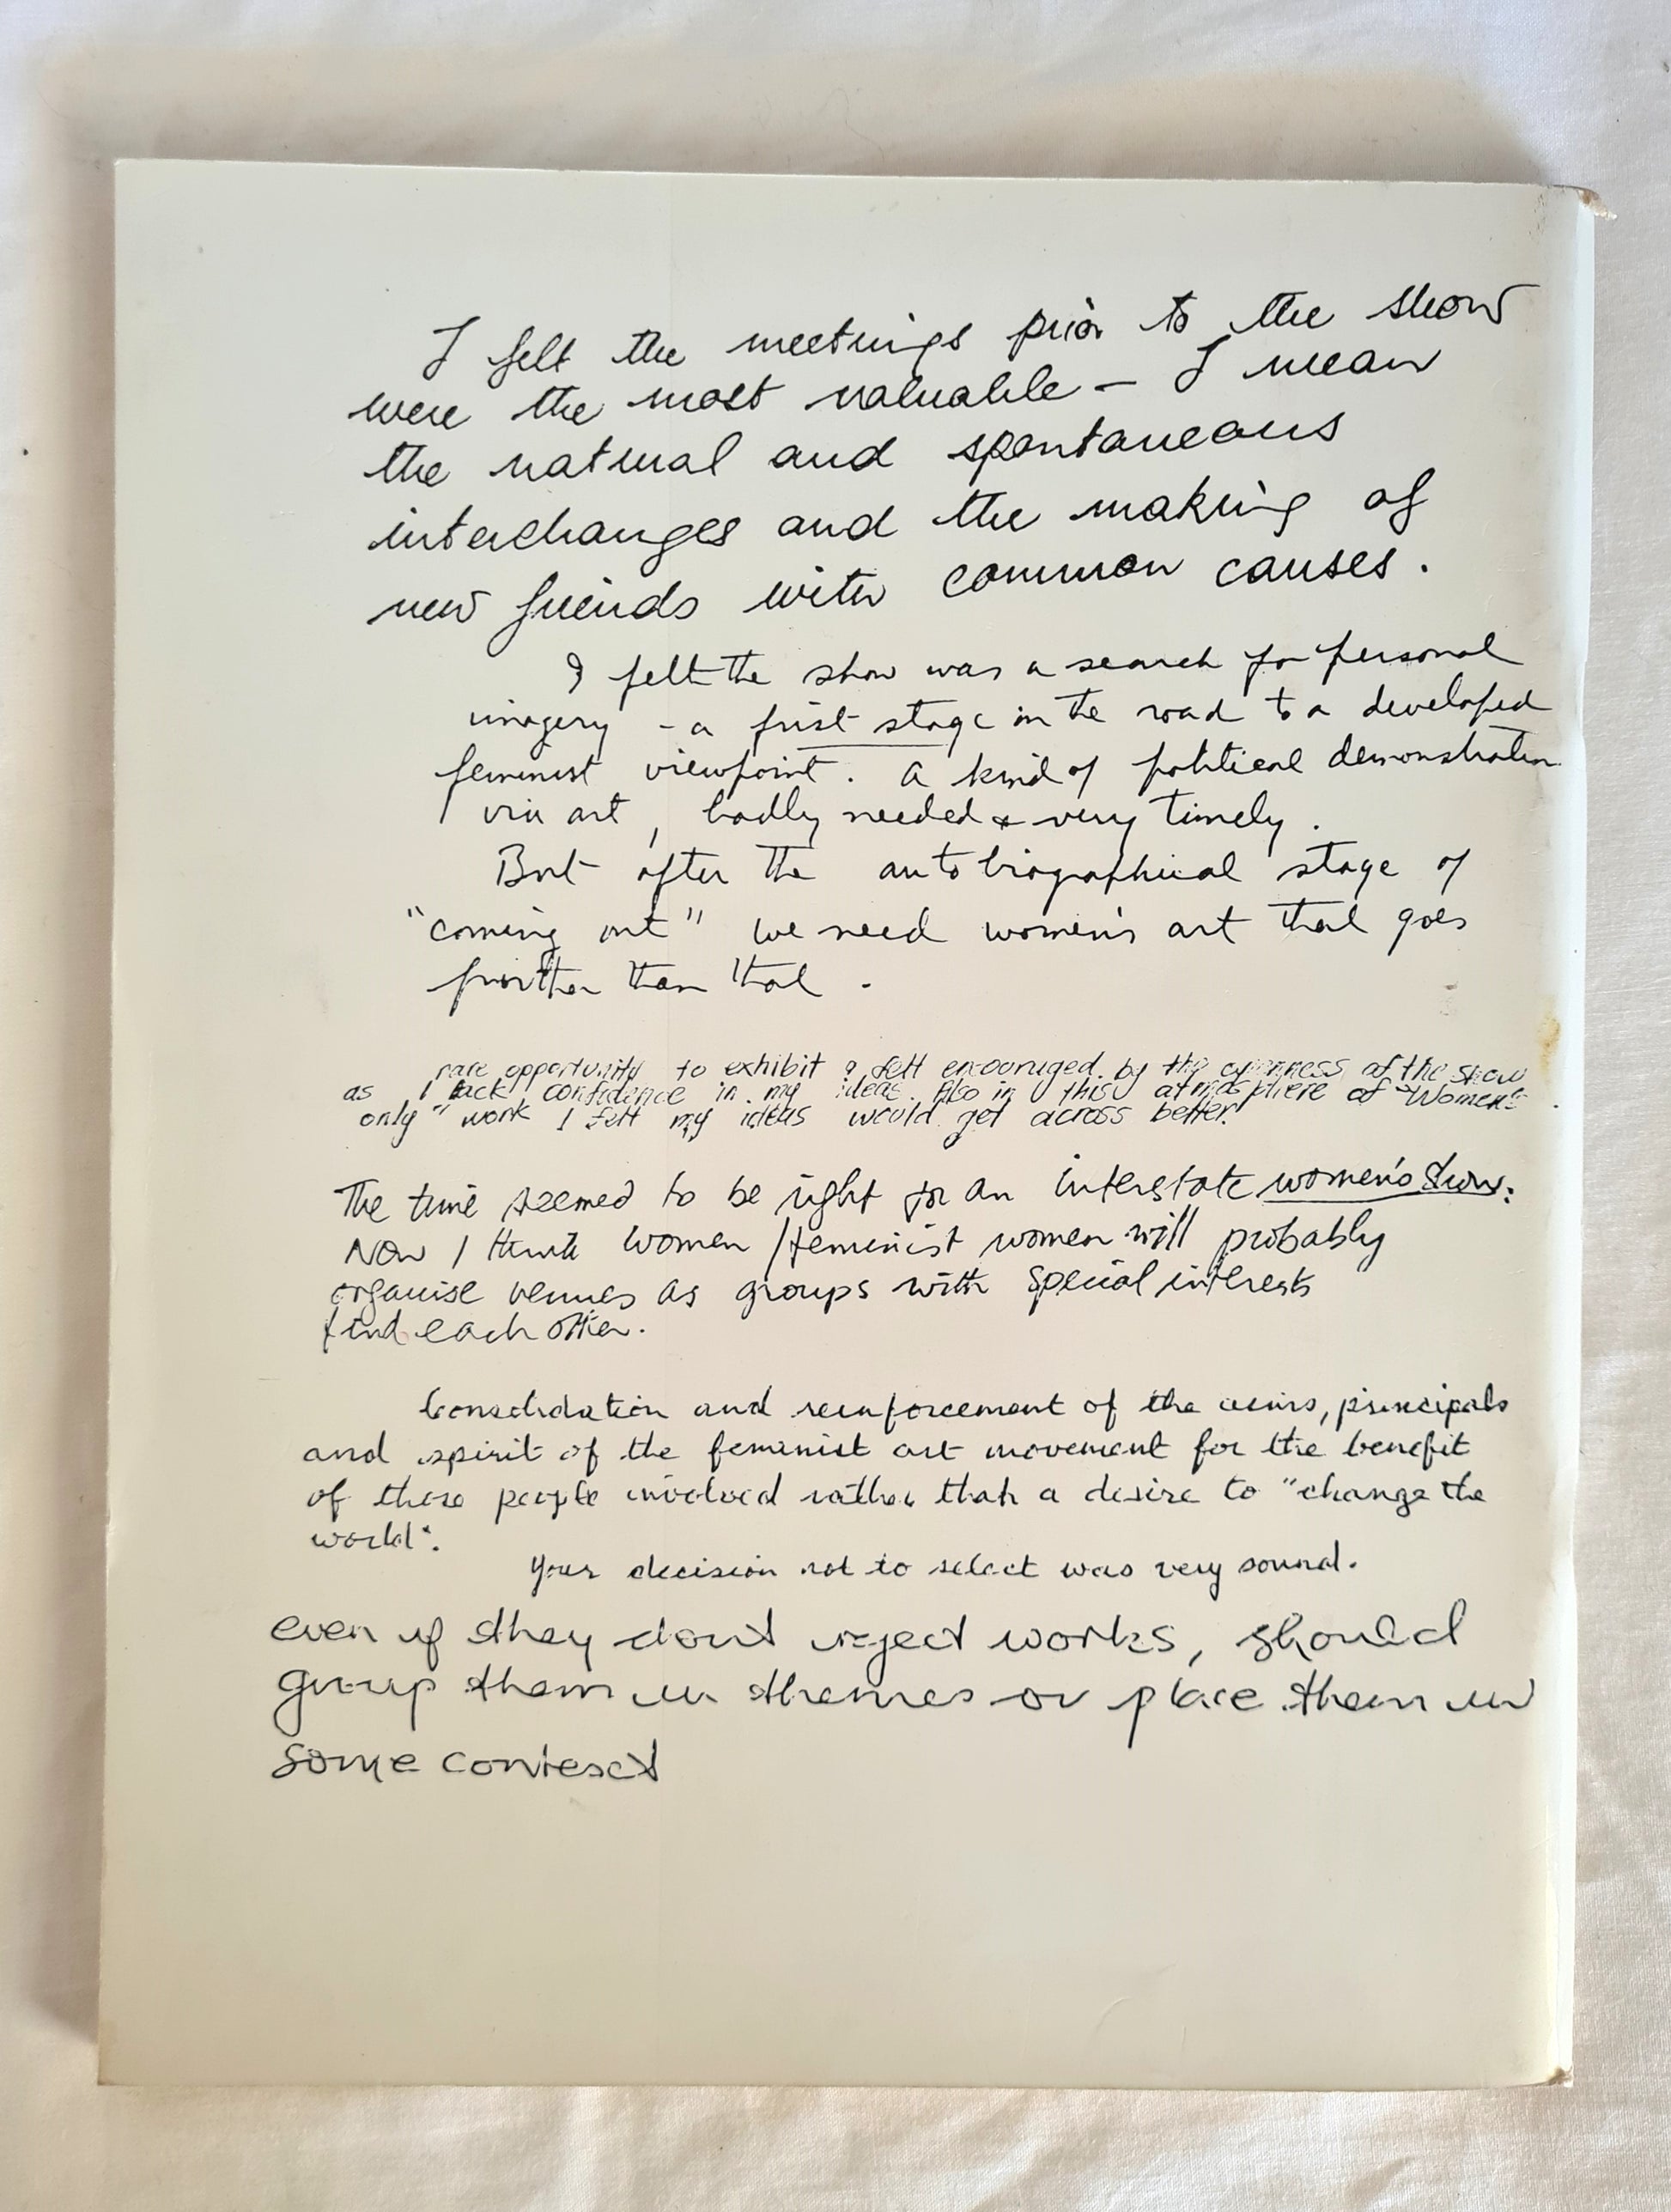 I felt the meetings prior to the show
were the most valuable – I mean
the natural and spontaneous
interchanges and the making of
new friends with common causes.
I felt the show was a search for personal
imagery – a first stage in the road to a developed
feminist viewpoint. A kind of political demonstration
via art, badly needed & very timely.
But after the autobiographical stage of
"coming out" we need women's art that goes
further than that.
rare opportunity to exhibit & felt encouraged by the openness of the show
as I lack confidence in my ideas. Also in this atmosphere of "Women's
only" work I felt my ideas would get across better.
The time seemed to be right for an interstate women's show.
Now I think women/feminist women will probably
organise venues as groups with special interests
find each other.
Consolidation and reinforcement of the aims, principals
and spirit of the feminist art movement for the benefit
of those people involved rather than a desire to "change the
world".
Your decision not to select was very sound.
even if they dont reject works, should
group them in themes or place them in
some context